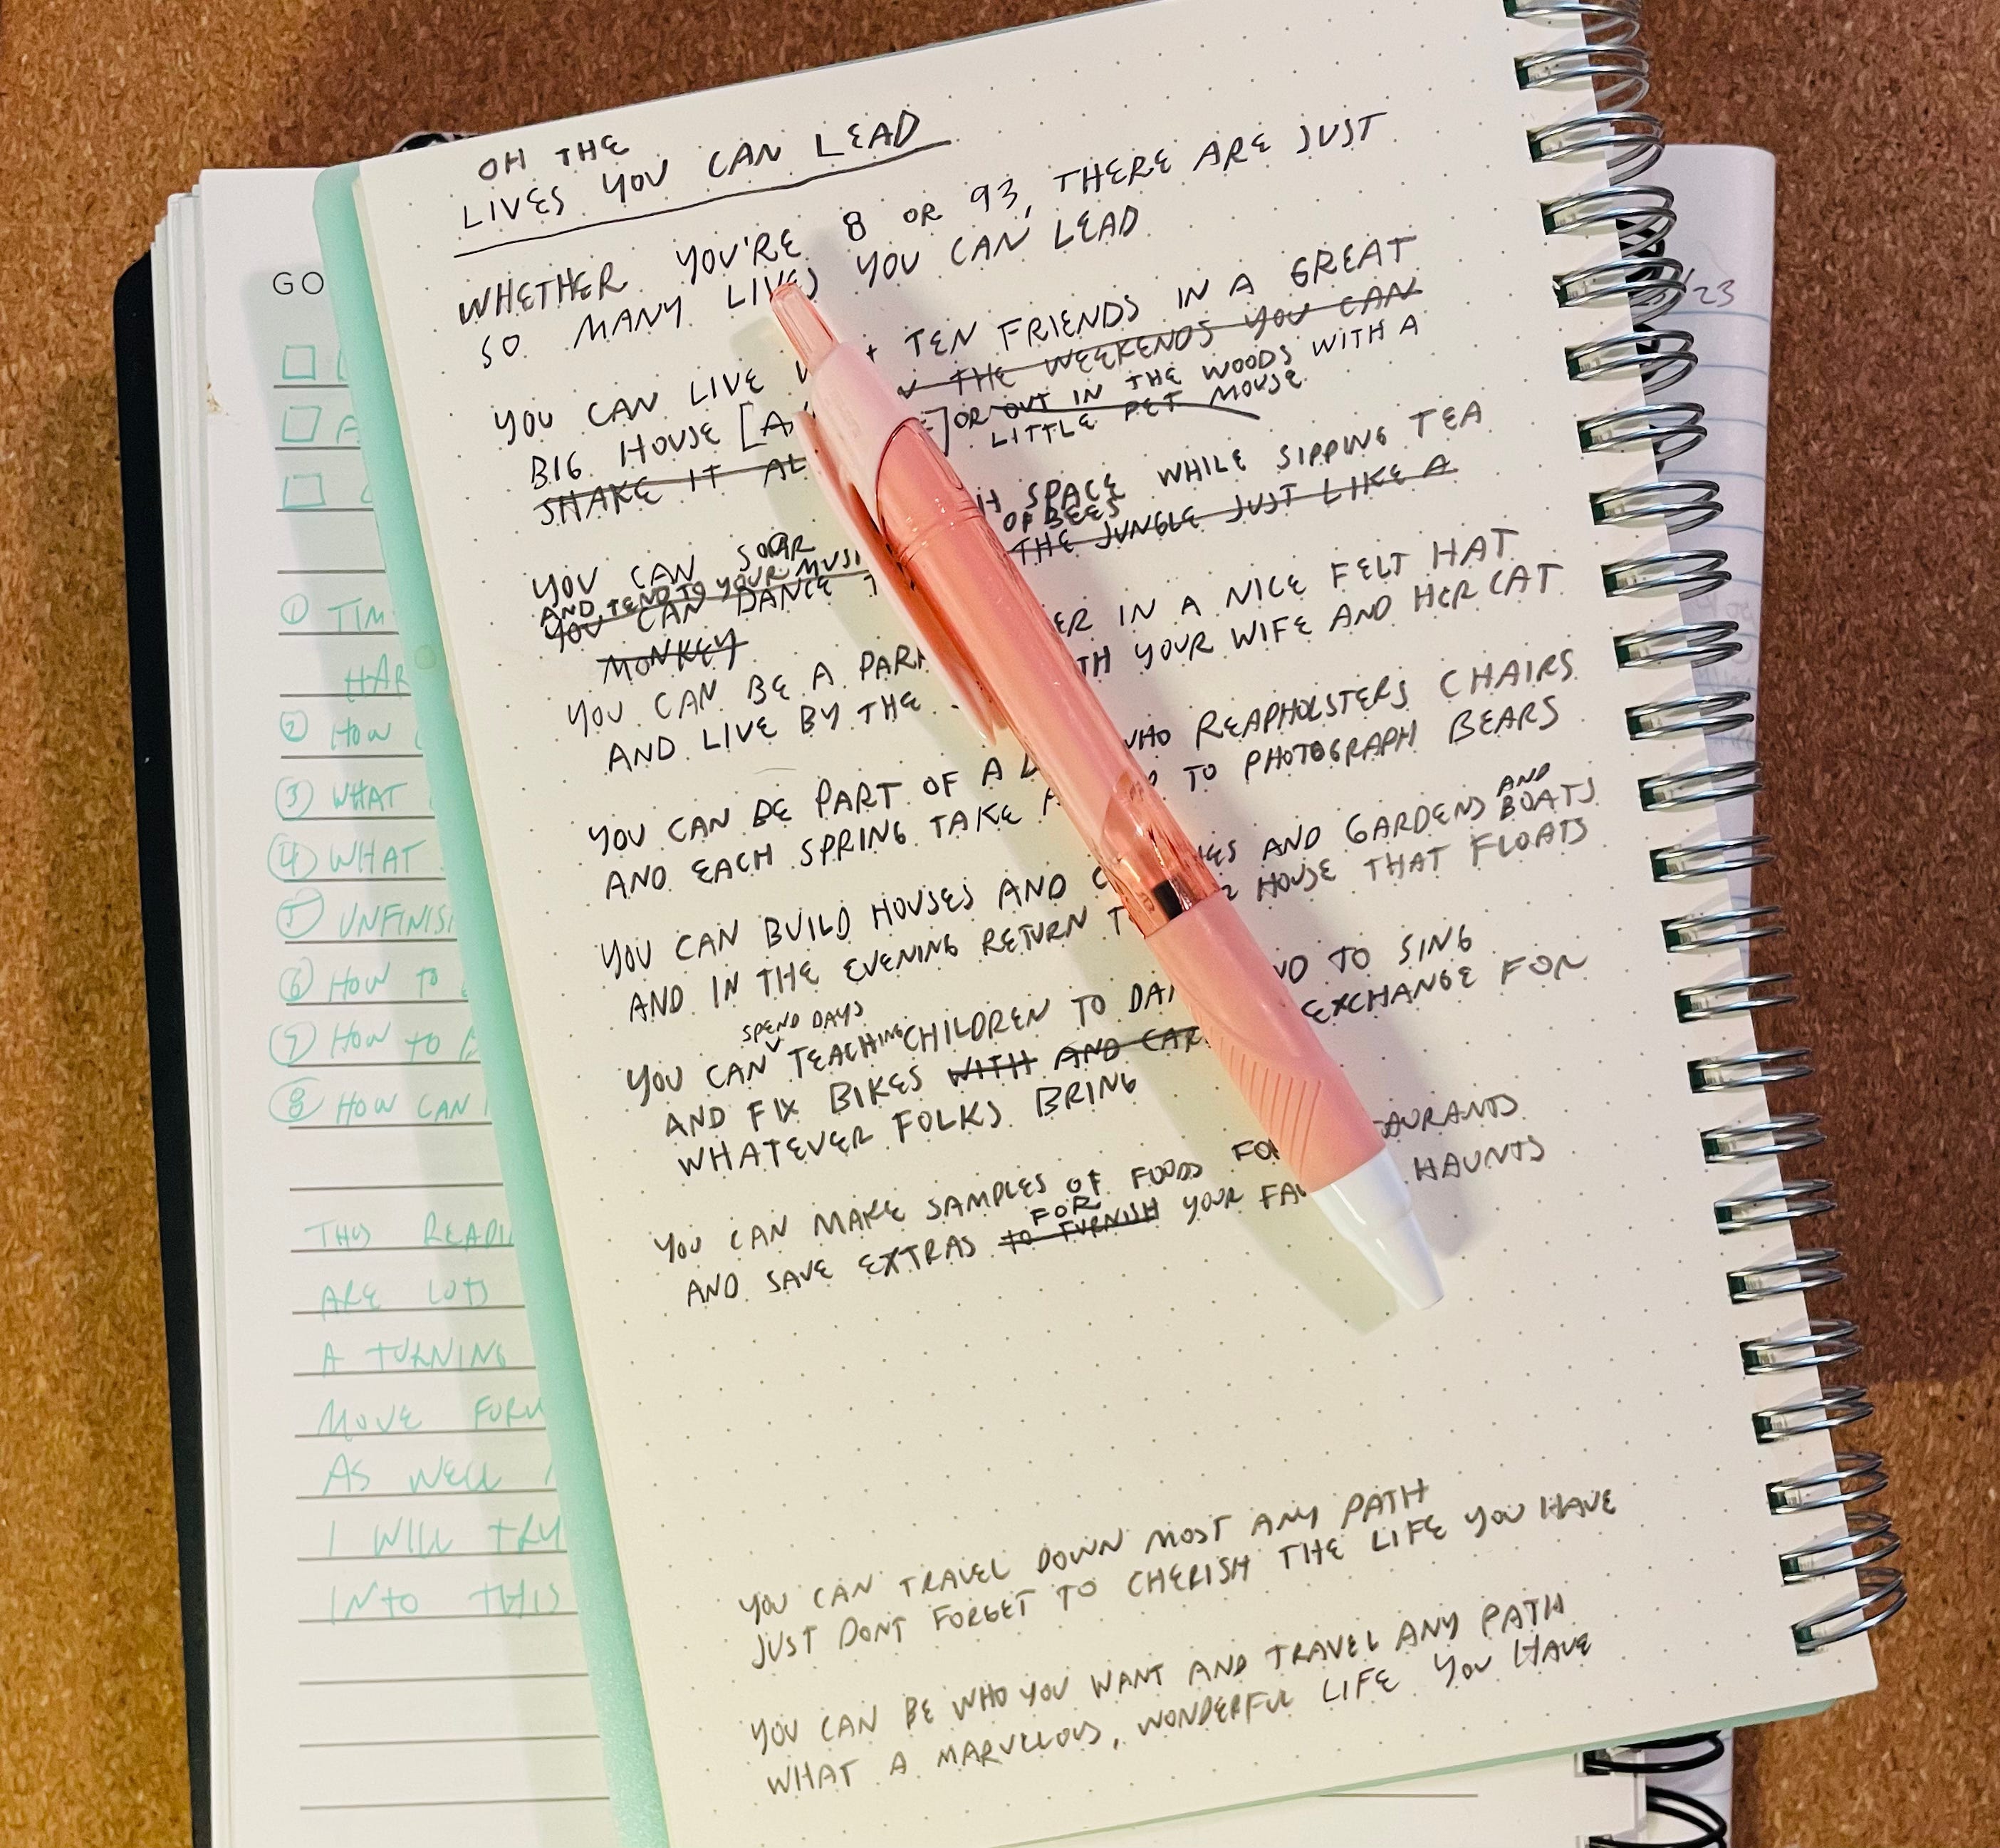 OH THE
LIVES YOU CAN LEAD
WHETHER YOU'RE 8 OR 93, THERE ARE JUST
SO MANY LIVES YOU CAN LEAD
YOU CAN LIVE TEN FRIENDS IN A GREAT
BIG HOUSE [ THE WEEKENDS YOU CAN
] OR OUT IN THE WOODS WITH A
LITTLE PET MOUSE
SHAKE IT
YOU CAN SOAR SPACE WHILE SIPPING TEA
AND TEND TO YOUR OF BEES
YOU CAN DANCE THE JUNGLE JUST LIKE A
MONKEY
YOU CAN BE A IN A NICE FELT HAT
AND LIVE BY THE YOUR WIFE AND HER CAT
YOU CAN BE PART OF A WHO REAPHOLSTERS CHAIRS
AND EACH SPRING TAKE TO PHOTOGRAPH BEARS
YOU CAN BUILD HOUSES AND AND GARDENS AND BOATS
AND IN THE EVENING RETURN HOUSE THAT FLOATS
SPEND DAYS
YOU CAN TEACHING CHILDREN TO TO SING
AND FIX BIKES WITH AND EXCHANGE FOR
WHATEVER FOLKS BRING
YOU CAN MAKE SAMPLES OF FOODS
FOR
AND SAVE EXTRAS TO FURNISH YOUR HAUNTS
YOU CAN TRAVEL DOWN MOST ANY PATH
JUST DONT FORGET TO CHERISH THE LIFE YOU HAVE
YOU CAN BE WHO YOU WANT AND TRAVEL ANY PATH
WHAT A MARVELLOUS, WONDERFUL LIFE YOU HAVE
GO
① TIM
HAR
② HOW
③ WHAT
④ WHAT
⑤ UNFINIS
⑥ HOW TO
⑦ HOW TO
⑧ HOW CAN
THIS READI
ARE LOTS
A TURNING
MOVE FORW
AS WELL
I WILL TRY
INTO THIS
/23